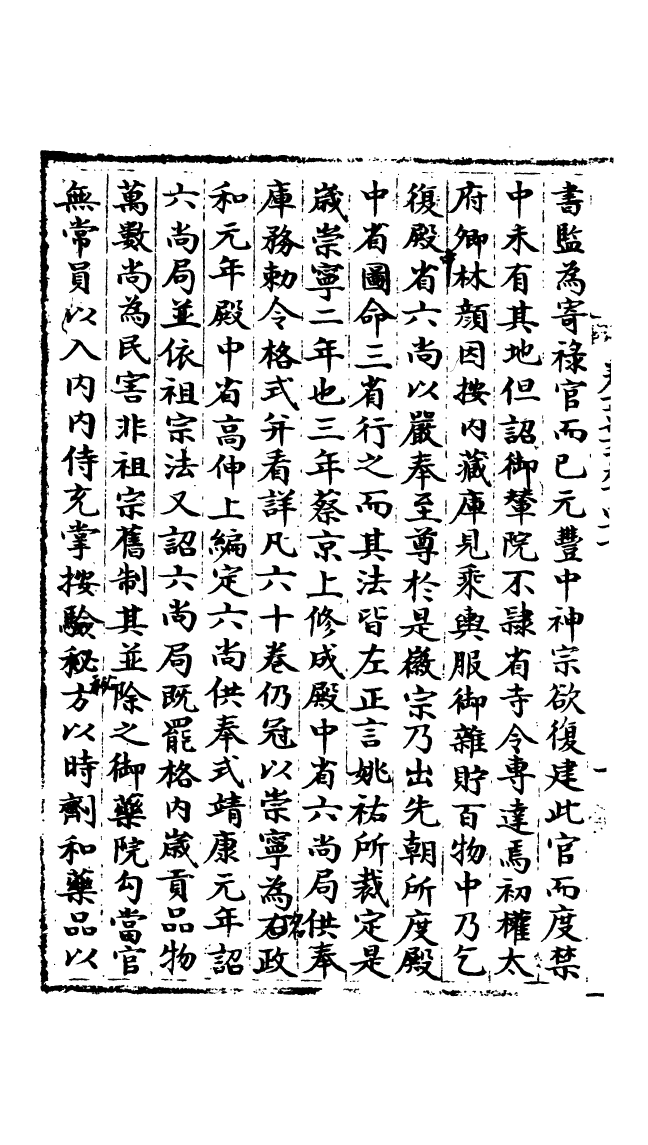 書監為寄祿官而已元豐中神宗欲復建此官而度禁
中未有其地但詔御輦院不隷省寺令專達焉初權太
府卿林顔因按內藏庫見乘輿服御雜貯百物中乃乞
復殿中省六尚以嚴奉至尊於是徽宗乃出先朝所度殿
中省圖命三省行之而其法皆左正言姚祐所裁定是
歲崇寧二年也三年蔡京上修成殿中省六尚局供奉
庫務勅令格式并看詳凡六十卷仍冠以崇寧為名政
和元年殿中省高伸上編定六尚供奉式靖康元年詔
六尚局並依祖宗法又詔六尚局既罷格內歲貢品物
萬數尚為民害非祖宗舊制其並除之御藥院勾當官
無常員以入內內侍充掌按驗秘方以時劑和藥品以